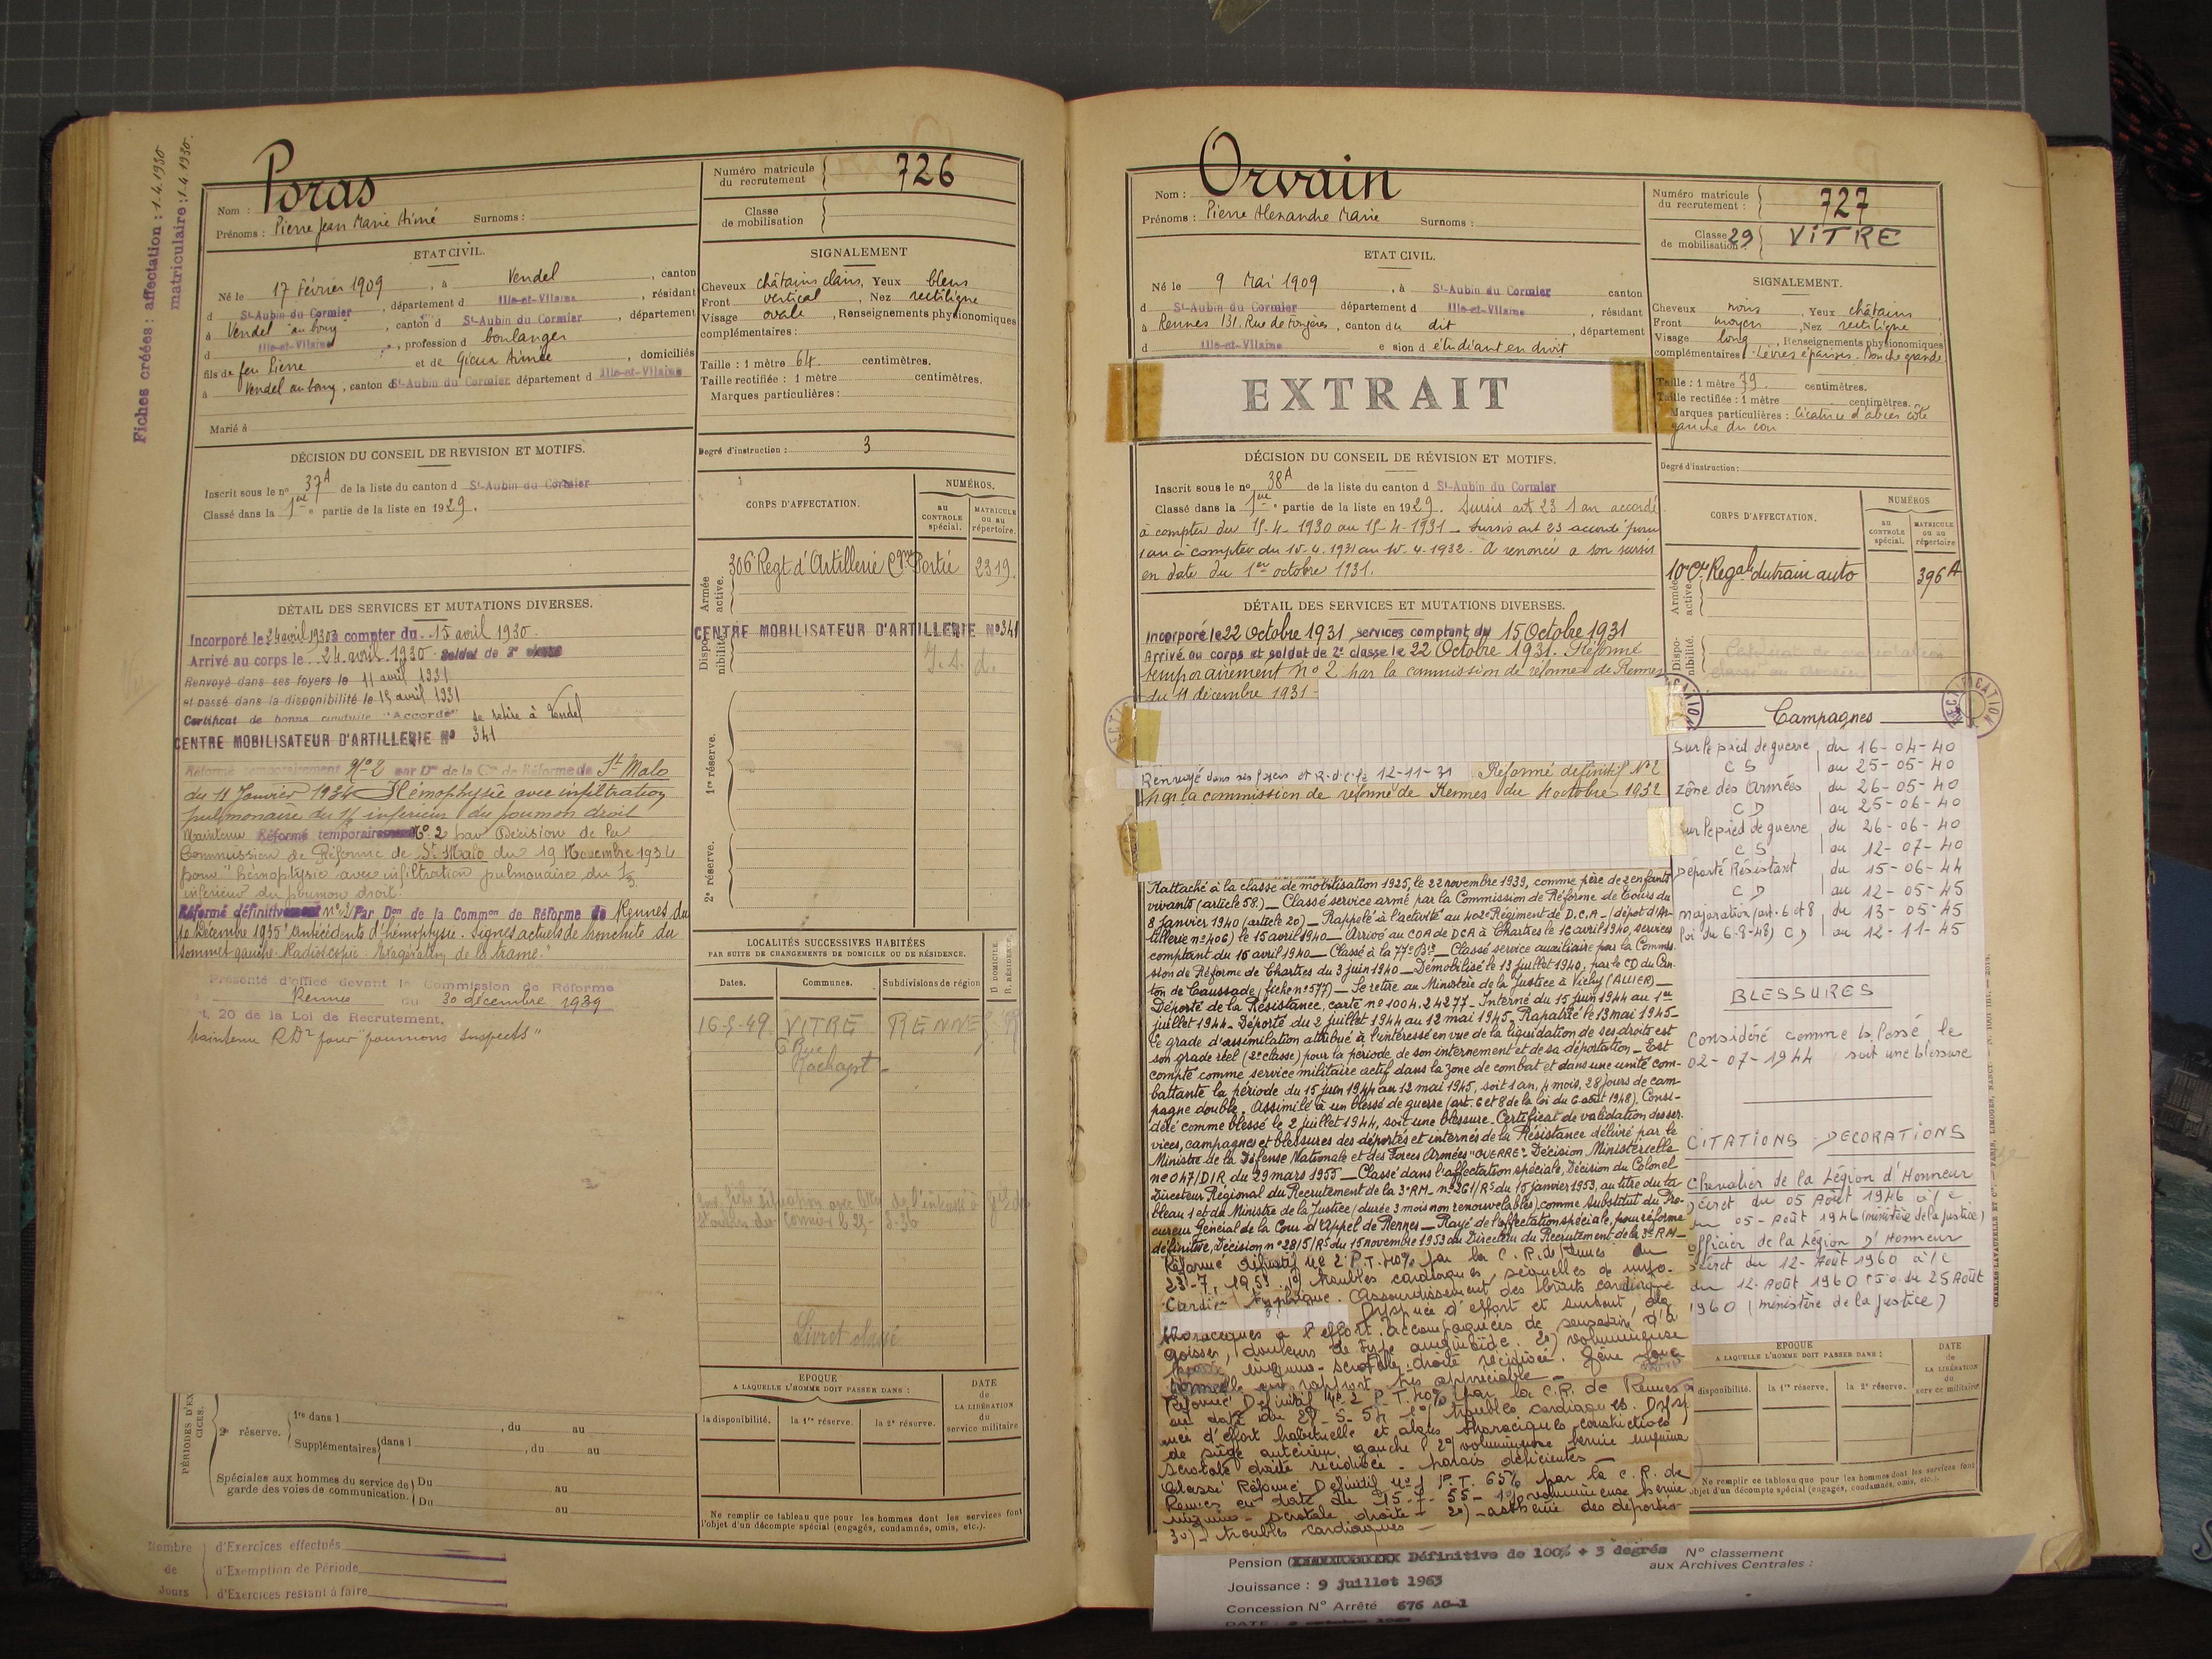 Fiches créées : affectation : 1.4.1930
matriculaire : 1.4.1930.
Nom : Poras
Prénoms : Pierre Jean Marie Aimé Surnoms :
Numéro matricule du recrutement 726
Classe de mobilisation
ETAT CIVIL.
Né le 17 Février 1909, à Vendel, canton
d St-Aubin du Cormier, département d Ille-et-Vilaine, résidant
à Vendel "au bourg", canton d St-Aubin du Cormier, département
d Ille-et-Vilaine, profession d boulanger
fils de feu Pierre et de Aimée, domiciliés
à Vendel au bourg, canton d St-Aubin du Cormier département d Ille-et-Vilaine
Marié à
SIGNALEMENT
Cheveux châtains clairs, Yeux bleus
Front vertical, Nez rectiligne
Visage ovale, Renseignements physionomiques
complémentaires :
Taille : 1 mètre 64. centimètres.
Taille rectifiée : 1 mètre centimètres.
Marques particulières :
Degré d'instruction : 3
DÉCISION DU CONSEIL DE REVISION ET MOTIFS.
Inscrit sous le no 37A de la liste du canton d St-Aubin du Cormier
Classé dans la 1ère partie de la liste en 1929.
CORPS D'AFFECTATION.
NUMÉROS.
au CONTROLE spécial.
MATRICULE ou au répertoire.
Armée active.
306e Regt d'Artillerie Cgne Portée 2319.
Disponibilité.
CENTRE MOBILISATEUR D'ARTILLERIE No 341
1re réserve.
2e réserve.
DÉTAIL DES SERVICES ET MUTATIONS DIVERSES.
Incorporé le 24 avril 1930 à compter du 15 avril 1930.
Arrivé au corps le 24 avril 1930 Soldat de 2e classe
Renvoyé dans ses foyers le 11 avril 1931
et passé dans la disponibilité le 15 avril 1931
Certificat de bonne conduite "Accordé" se retire à Vendel
CENTRE MOBILISATEUR D'ARTILLERIE No 341
Réformé temporairement No 2 par Don de la Con de Réforme de St Malo
du 11 Janvier 1934 Hémophysie avec infiltration
pulmonaire du 1/3 inférieur du poumon droit
Maintenu Réformé temporairement No 2 par Décision de la
Commission de Réforme de St Malo du 19 Novembre 1934
pour "hémophysie avec infiltration pulmonaire du 1/3
inférieur du poumon droit.
Réformé définitivement no 2 Par Don de la Common de Réforme de Rennes du
10 Décembre 1935 "Antécédents d'hémophysie. Signes actuels de bronchite du
sommet gauche. Radioscopie. Exagération de la trame."
Présenté d'office devant la Commission de Réforme
Rennes du 30 décembre 1939
t. 20 de la Loi de Recrutement.
Maintenu RD2 pour "poumons suspects"
LOCALITÉS SUCCESSIVES HABITÉES
PAR SUITE DE CHANGEMENTS DE DOMICILE OU DE RÉSIDENCE.
Dates. Communes. Subdivisions de région D. DOMICILE. R. RÉSIDENCE.
16-5-49 VITRE RENNES R
6 Rue
Rachapt
Livret classé
PÉRIODES D'EXERCICES.
2e réserve. 1re dans l , du au
Supplémentaires dans l , du au
Spéciales aux hommes du service de garde des voies de communication. Du au
Du au
EPOQUE
A LAQUELLE L'HOMME DOIT PASSER DANS :
la disponibilité. la 1re réserve. la 2e réserve.
DATE de LA LIBÉRATION du service militaire
Ne remplir ce tableau que pour les hommes dont les services font
l'objet d'un décompte spécial (engagés, condamnés, omis, etc.).
Nombre de Jours
d'Exercices effectués
d'Exemption de Période
d'Exercices restant à faire
Nom : Orvain
Prénoms : Pierre Alexandre Marie Surnoms :
Numéro matricule du recrutement : 727
Classe de mobilisation : 29 VITRE
ETAT CIVIL.
Né le 9 Mai 1909, à St-Aubin du Cormier canton
d St-Aubin du Cormier département d Ille-et-Vilaine, résidant
à Rennes 131, Rue de Fougères, canton du dit, département
d Ille-et-Vilaine e sion d étudiant en droit
EXTRAIT
SIGNALEMENT.
Cheveux noirs, Yeux châtains
Front moyen, Nez rectiligne
Visage long, Renseignements physionomiques
complémentaires : Lèvres épaisses - Bouche grande
Taille : 1 mètre 79. centimètres.
Taille rectifiée : 1 mètre centimètres.
Marques particulières : Cicatrice d'abcès côté
gauche du cou
Degré d'instruction :
DÉCISION DU CONSEIL DE RÉVISION ET MOTIFS.
Inscrit sous le no 38A de la liste du canton d St-Aubin du Cormier
Classé dans la 1ère partie de la liste en 1929. Sursis art 23 1 an accordé
à compter du 15-4-1930 au 15-4-1931 - Sursis art 23 accordé pour
1 an à compter du 15.4.1931 au 15.4.1932. A renoncé à son sursis
en date du 1er octobre 1931.
CORPS D'AFFECTATION.
NUMÉROS
au CONTROLE spécial.
MATRICULE ou au répertoire
Armée active.
10e Cie Regale du train auto 396 A
Disponibilité.
DÉTAIL DES SERVICES ET MUTATIONS DIVERSES.
Incorporé le 22 Octobre 1931 services comptant du 15 Octobre 1931
Arrivé au corps et soldat de 2e classe le 22 Octobre 1931. Réformé
temporairement No 2 par la commission de réformes de Rennes
du 11 décembre 1931-
Renvoyé dans ses foyers et R.d.c.le 12-11-31 Réformé définitif No 2
par la commission de réforme de Rennes du 4 octobre 1932
Rattaché à la classe de mobilisation 1925, le 22 novembre 1939, comme père de 2 enfants
vivants (article 58.) _ Classé service armé par la Commission de Réforme de Tours du
8 Janvier 1940 (article 20) _ Rappelé à l'activité au 402e Régiment de D.C.A - (dépôt d'Ar-
tillerie no 406) le 15 avril 1940 _ Arrivé au COA de DCA à Chartres le 16 avril 1940, services
comptant du 15 avril 1940 _ Classé à la 77e Bie _ Classé service auxiliaire par la Commis-
sion de Réforme de Chartres du 3 juin 1940 _ Démobilisé le 13 juillet 1940, par le CD du Can-
ton de Caussade (fiche no 577) _ Se retire au Ministère de la Justice à Vichy (ALLIER) _
Déporté de la Résistance, carte no 1004.24277 - Interné du 15 juin 1944 au 1er
juillet 1944 - Déporté du 2 juillet 1944 au 12 mai 1945 - Rapatrié le 13 mai 1945 -
Le grade d'assimilation attribué à l'intéressé en vue de la liquidation de ses droits est
son grade réel (2e classe) pour la période de son internement et de sa déportation _ Est
compté comme service militaire actif dans la zone de combat et dans une unité com-
battante la période du 15 juin 1944 au 12 mai 1945, soit 1 an, 4 mois, 28 jours de cam-
pagne double. Assimilé à un blessé de guerre (art. 6 et 8 de la loi du 6 août 1948). Consi-
déré comme blessé le 2 juillet 1944, soit une blessure - Certificat de validation des ser-
vices, campagnes et blessures des déportés et internés de la Résistance délivré par le
Ministre de la Défense Nationale et des Forces Armées "GUERRE". Décision Ministérielle
no 047/DIR du 29 mars 1955 _ Classé dans l'affectation spéciale, Décision du Colonel
Directeur Régional du Recrutement de la 3e RM no 261/Rs du 15 janvier 1953, au titre du ta
bleau 1 et du Ministre de la Justice (durée 3 mois non renouvelables) comme Substitut du Pro-
cureur Général de la Cour d'Appel de Rennes _ Rayé de l'affectation spéciale, pour réforme
définitive, Décision no 2815/Rs du 15 novembre 1953 du Directeur du Recrutement de la 3e RM _
Réformé définitif No 2 P.T. 40% par la C.R. de Rennes du
23-7-1953. 1o) troubles cardiaques, séquelles de myo-
cardie Assourdissement des bruits cardiaques
Dyspnée d'effort et surtout,
thoraciques à l'effort accompagnées de sensation d'an
goisse, douleurs de type angineux. 2o) volumineuse
hernie inguino-scrotale droite récidivée. Gêne fonc
tionnelle en rapport très appréciable _
Réformé Définitif No 2 P.T. 40% par la C.R. de Rennes
en date du 29-5-54 1o) troubles cardiaques. Dysp
née d'effort habituelle et algies thoraciques constrictives
de siège antérieur gauche 2o) volumineuse hernie inguino
scrotale droite récidivée - parois déficientes _
Classé Réformé Définitif No 1 P.T. 65% par la C.R. de
Rennes en date du 15-7-55 - 1o) volumineuse hernie
inguino-scrotale droite - 2o) - asthénie des déportés -
3o) - troubles cardiaques _
Campagnes
Sur le pied de guerre du 16-04-40
CS au 25-05-40
Zône des Armées du 26-05-40
CD au 25-06-40
Sur le pied de guerre du 26-06-40
CS au 12-07-40
Déporté Résistant du 15-06-44
CD au 12-05-45
majoration (art. 6 et 8 du 13-05-45
loi du 6-8-48) CD au 12-11-45
BLESSURES
Considéré comme blessé le
02-07-1944 soit une blessure
CITATIONS - DECORATIONS
Chevalier de la Légion d'Honneur
Décret du 05 Août 1946 à/c
du 05-Août 1946 (ministère de la justice)
Officier de la Légion D'Honneur
Décret du 12-Août 1960 à/c
du 12-Août 1960 (J.O. du 25 Août
1960 (ministère de la Justice)
EPOQUE
A LAQUELLE L'HOMME DOIT PASSER DANS :
disponibilité. la 1re réserve. la 2e réserve.
DATE de LA LIBÉRATION du service militaire
Ne remplir ce tableau que pour les hommes dont les services font
objet d'un décompte spécial (engagés, condamnés, omis, etc.).
Pension Définitive de 100% + 3 degrés
No classement aux Archives Centrales :
Jouissance : 9 juillet 1963
Concession No Arrêté 676 AG-1